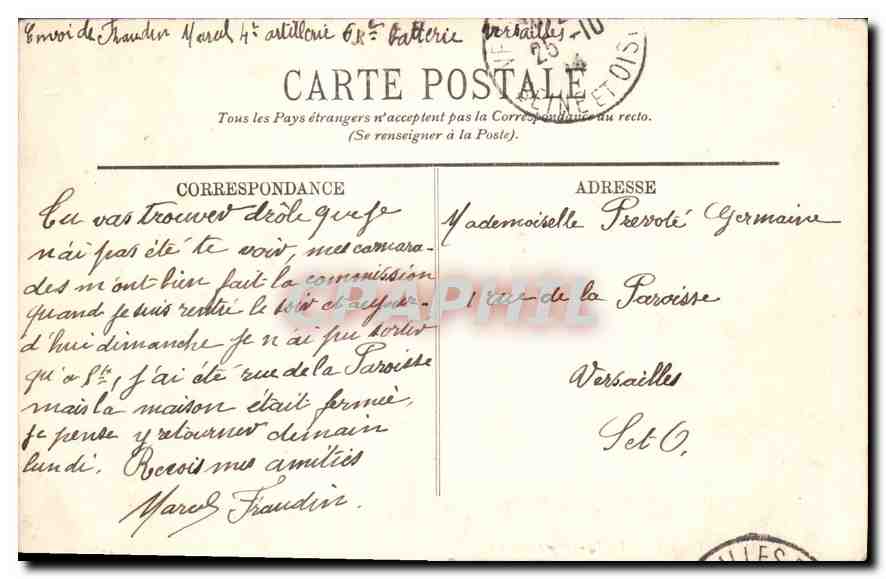 Envoi de Fraudin Marcel 4e artillerie 61e Batterie Versailles
25 -10
14
SEINE ET OISE
CARTE POSTALE
Tous les Pays étrangers n'acceptent pas la Correspondance au recto.
(Se renseigner à la Poste).
CORRESPONDANCE
Tu vas trouver drôle que je
n'ai pas été te voir, mes camara-
des m'ont bien fait la commission
quand je suis rentré le soir et aujour-
d'hui dimanche je n'ai pu sortir
qu'a 5h, j'ai été rue de la Paroisse
mais la maison était fermée,
je pense y retourner demain
lundi. Recois mes amitiés
Marcel Fraudin.
ADRESSE
Mademoiselle Prevoté Germaine
1 rue de la Paroisse
Versailles
S et O.
CPAPHIL